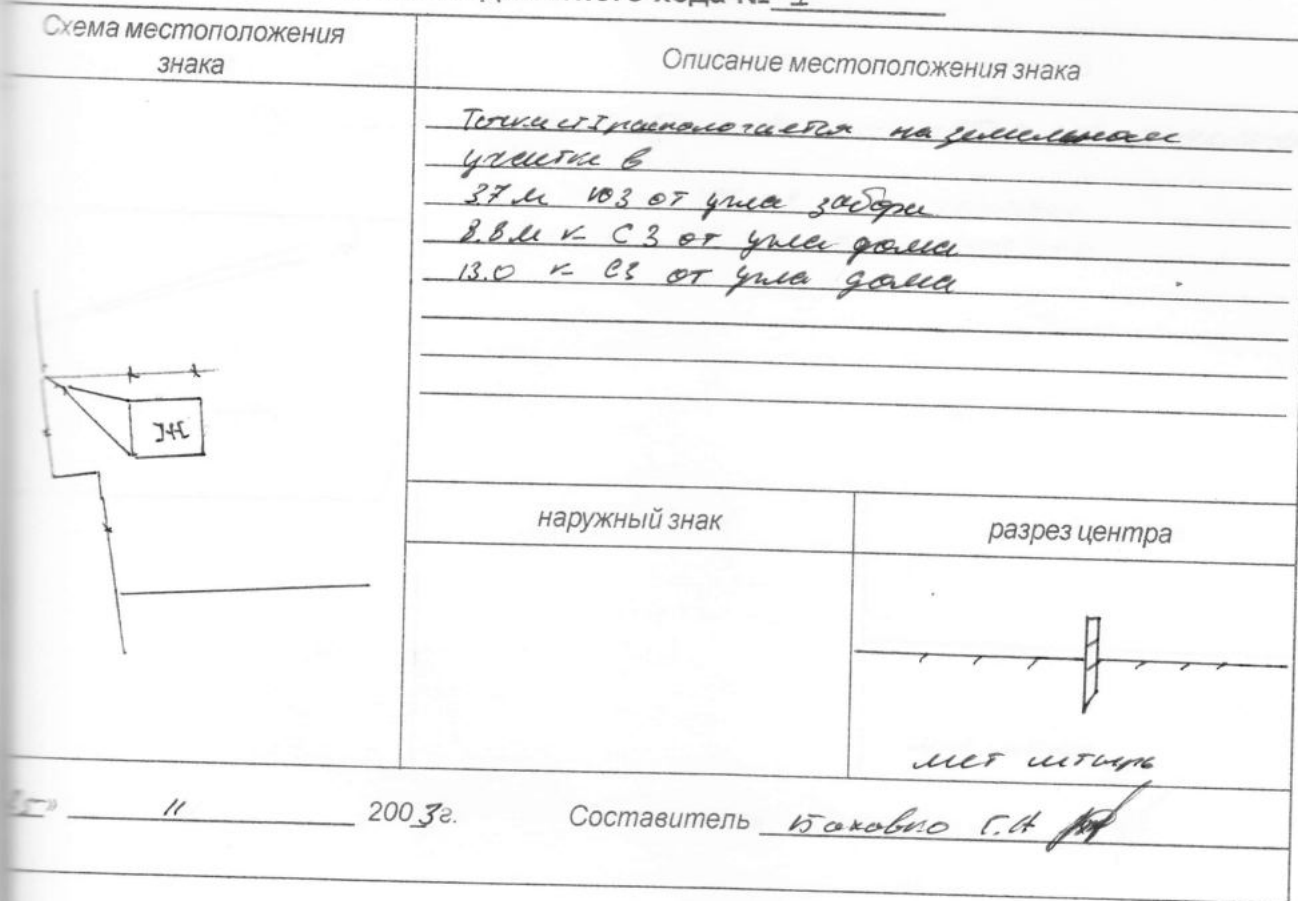 хода № 1
Схема местоположения
знака
Описание местоположения знака
распологается на земельном
участке в
37 м ЮЗ от угла забора
8.8 м к СЗ от угла дома
13.0 к СЗ от угла дома
Ж
наружный знак
разрез центра
мет штырь
11 2003г. Составитель